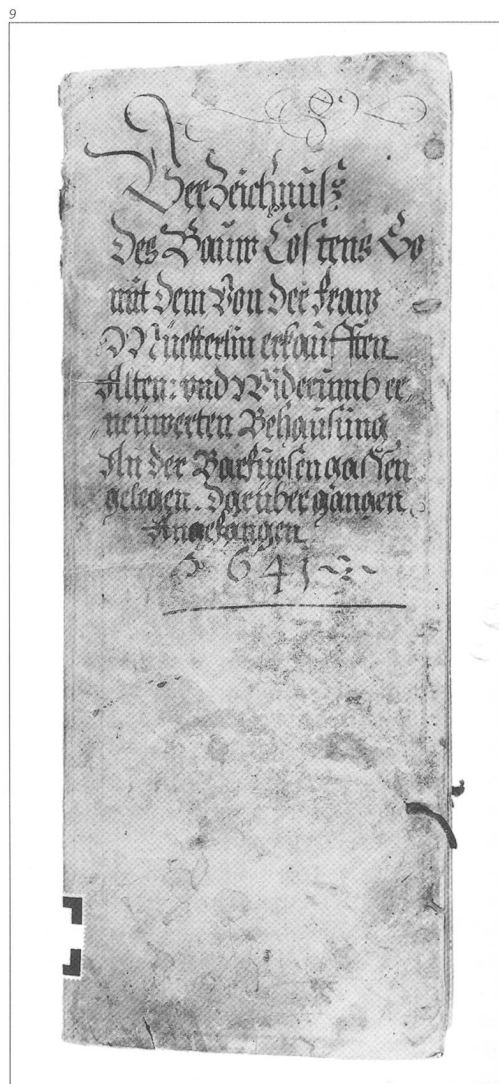 9
Verzeichnuß
Des Bauw Costens So
mit dem Von der Fraw
Müetterlin erkaufften
Alten: vnd Widerumb er„
„neüwerten Behausung
In der Barfüosen gassen
gelegen. Darüber gangen
Angefangen
1641